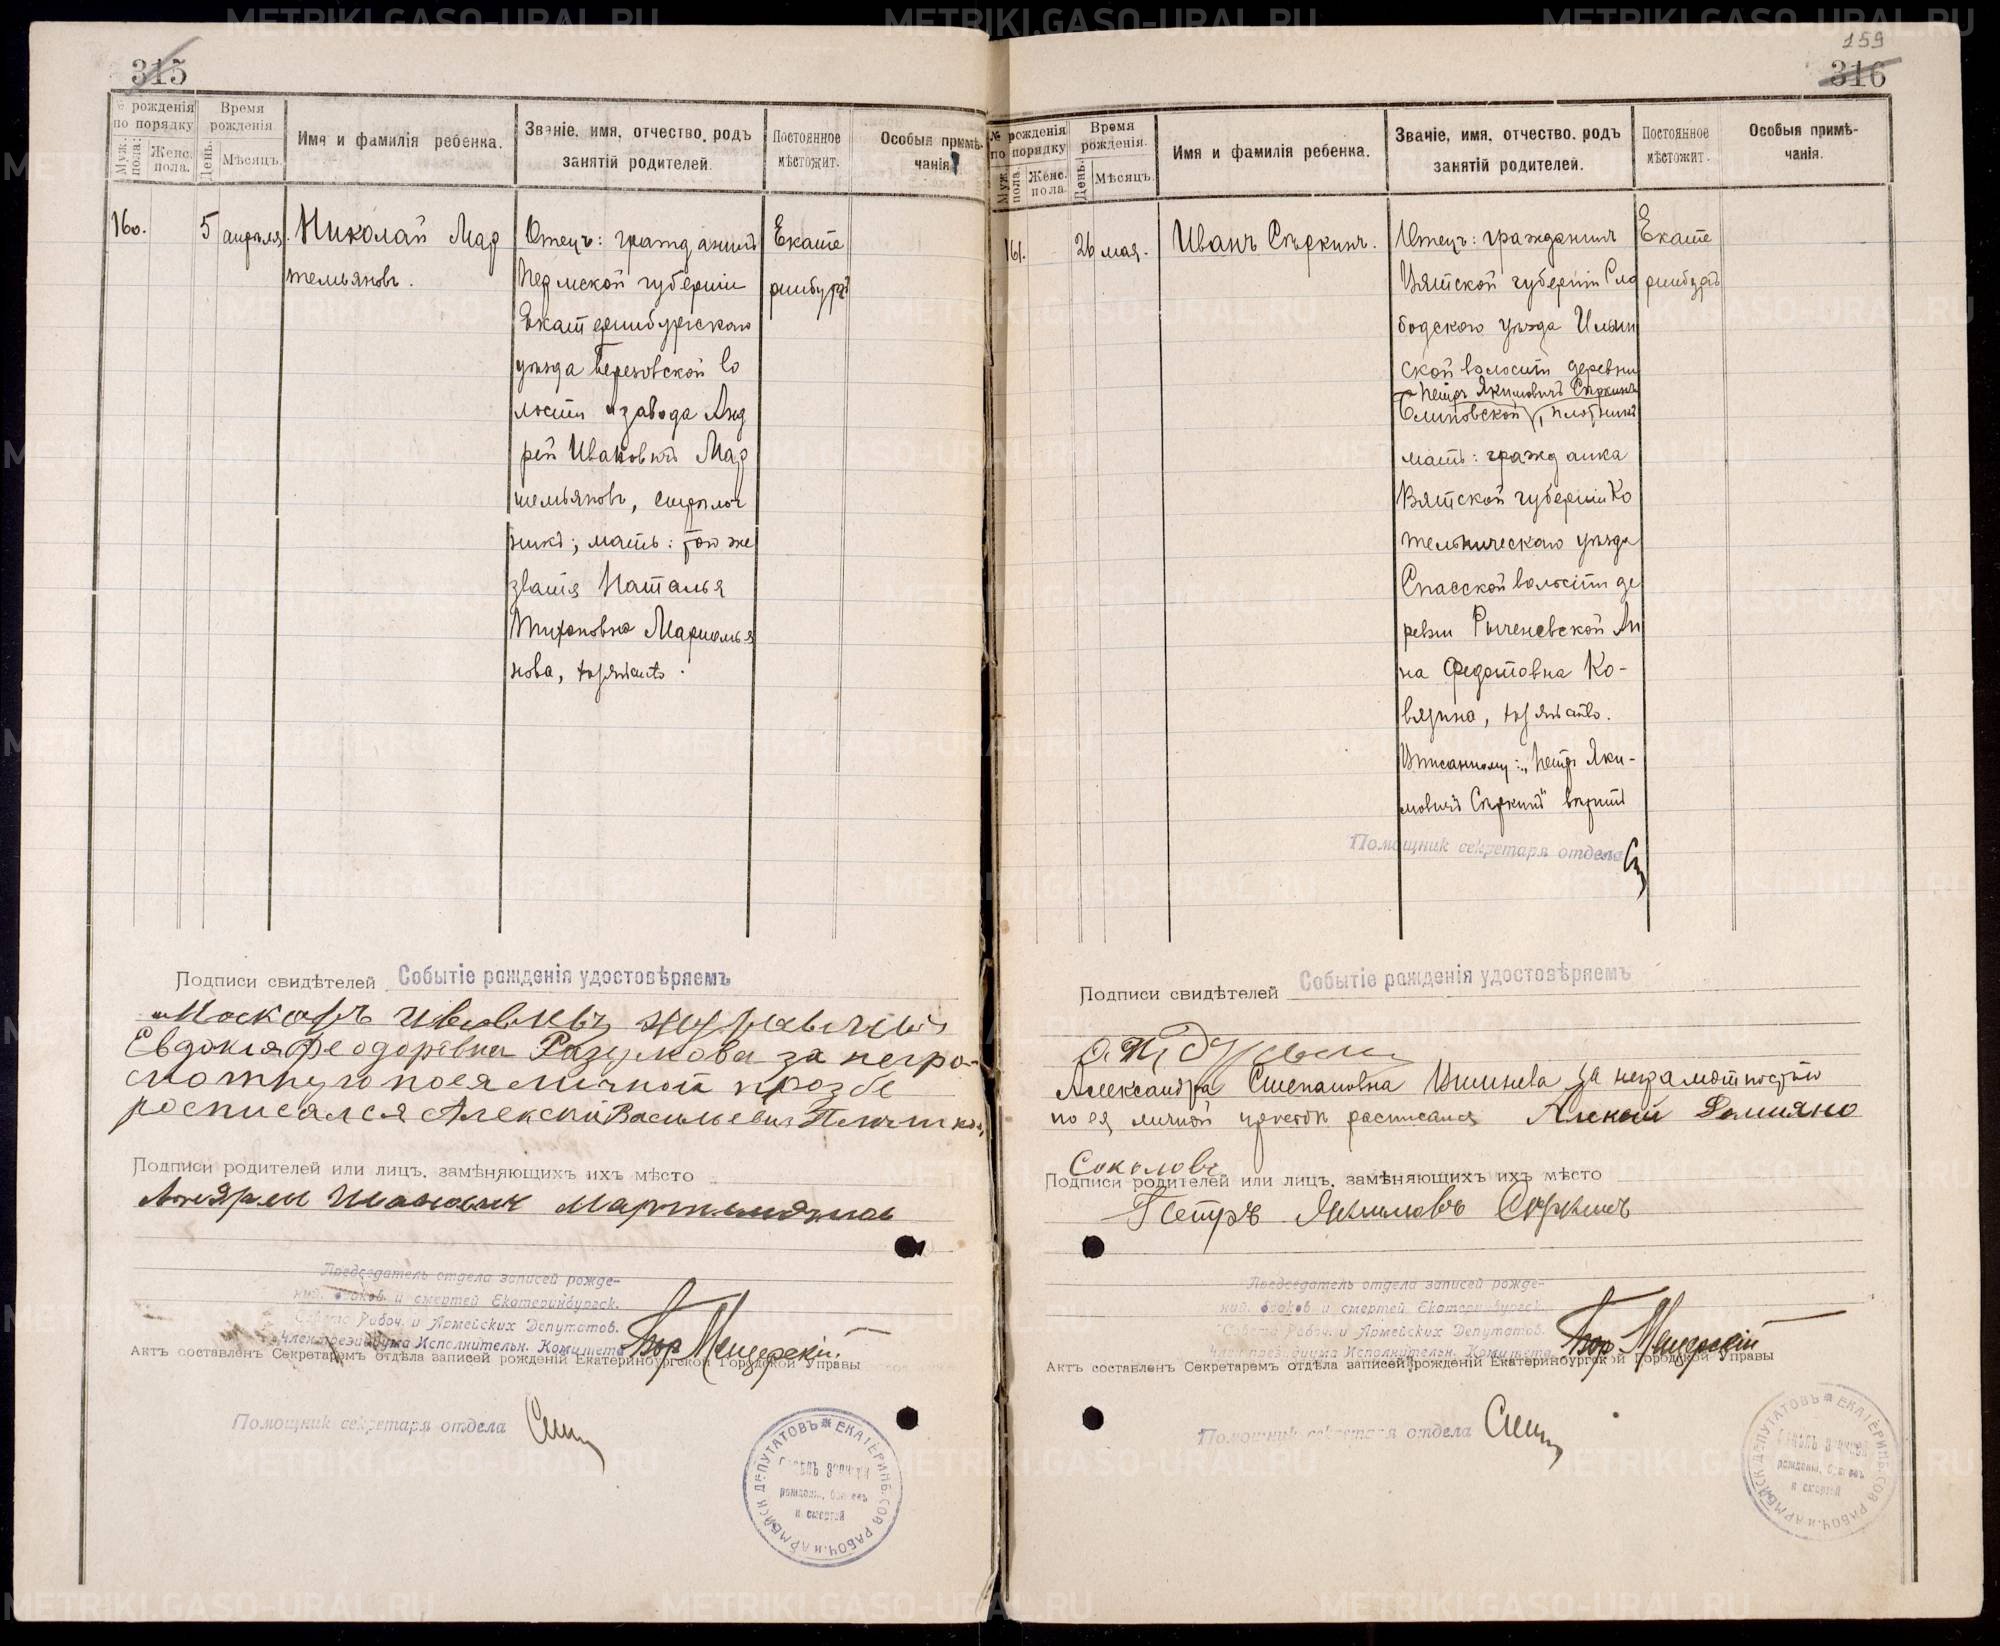 315
№ рожденія по порядку
Муж. пола.
Женс. пола.
Время рожденія
День.
Мѣсяцъ.
Имя и фамилія ребенка.
Званіе, имя, отчество, родъ
занятій родителей.
Постоянное
мѣстожит.
Особыя примѣ-
чанія.
160.
5 апрѣля.
Николай Мар
темьяновъ.
Отецъ: гражданинъ
Пермской губерніи
Екатеринбургскаго
уѣзда Березовской во
лости и завода Анд
рей Ивановичъ Мар
темьяновъ,
никъ; мать: того же
званія Наталья
Тихоновна Мартемья
нова,
Екате
ринбургъ
Подписи свидѣтелей Событіе рожденія удостовѣряемъ
Евдокия Феодоровна Разумова за негра-
мотную по ея личной прозбе
росписался Алексей Васильевич
Подписи родителей или лицъ, замѣняющихъ ихъ мѣсто
Предсѣдатель отдела записей рожде-
ний, браков и смертей Екатеринбургск.
Совета Рабоч. и Армейских Депутатов.
Член президиума Исполнительн. Комитета
Актъ составленъ Секретаремъ отдѣла записей рожденій Екатеринбургской Городской Управы
Помощник секретаря отдела
ЕКАТЕРИНБ. СОВ. РАБОЧ. и АРМЕЙСК. ДЕПУТАТОВЪ
рожденій, браковъ
и смертей
159
316
№ рожденія по порядку
Муж. пола.
Женс. пола
Время рожденія.
День.
Мѣсяцъ.
Имя и фамилія ребенка.
Званіе, имя, отчество. родъ
занятій родителей.
Постоянное
мѣстожит.
Особыя примѣ-
чанія.
161.
26 мая.
Иванъ Сѣркинъ.
Отецъ: гражданинъ
Вятской губерніи Сло
бодского уѣзда Ильин
ской волости деревни
Петръ Якимовичъ Сѣркинъ
плотникъ
мать: гражданка
Вятской губерніи Ко
тельническаго уѣзда
Спасской волости де
ревни Ан
на Федотовна Ко-
вязина,
Вписанному: „Петръ Яки-
мовичъ Сѣркинъ“ вѣрить
Помощник секретаря отдела
Екате
ринбургъ
Подписи свидѣтелей Событіе рожденія удостовѣряемъ
Александра Степановна за неграмотностью
по ея личной просьбѣ расписался Алексей
Соколовъ
Подписи родителей или лицъ, замѣняющихъ ихъ мѣсто
Петръ Якимовъ Сѣркинъ
Председатель отдела записей рожде-
ний, браков и смертей Екатеринбургск.
Совета Рабоч. и Армейских Депутатов.
Член президиума Исполнительн. Комитета
Актъ составленъ Секретаремъ отдѣла записей рожденій Екатеринбургской Городской Управы
Помощник секретаря отдела
ЕКАТЕРИНБ. СОВ. РАБОЧ. и АРМЕЙСК. ДЕПУТАТОВЪ
рожденій, браковъ
и смертей
METRIKI.GASO-URAL.RU